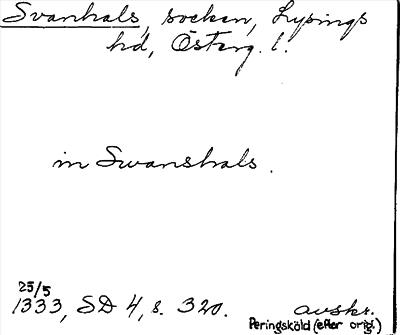 Svanhals, socken, Lysings
hd, Österg. l.
in Swanshals.
25/5
1333, SD 4, s. 320. avskr.
Peringsköld (efter orig.)